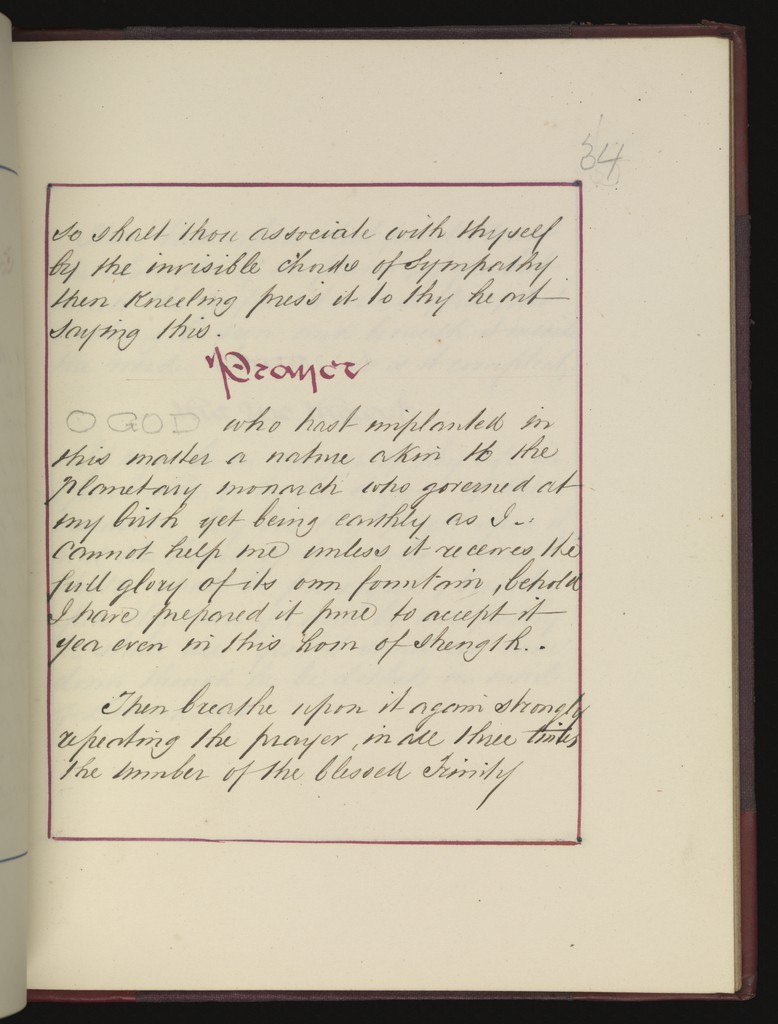 34
so shalt thou associate with thyself
by the invisible chords of Sympathy
then Kneeling press it to thy heart
saying this.
Prayer
O GOD who hast implanted in
this matter a nature akin to the
planetary monarch who governed at
my birth yet being earthly as I..
Cannot help me unless it receives the
full glory of its own fountain, behold
I have prepared it pure to accept it
yea even in this hour of strength..
Then breathe upon it again strongly
repeating the prayer, in all three times
the number of the blessed Trinity